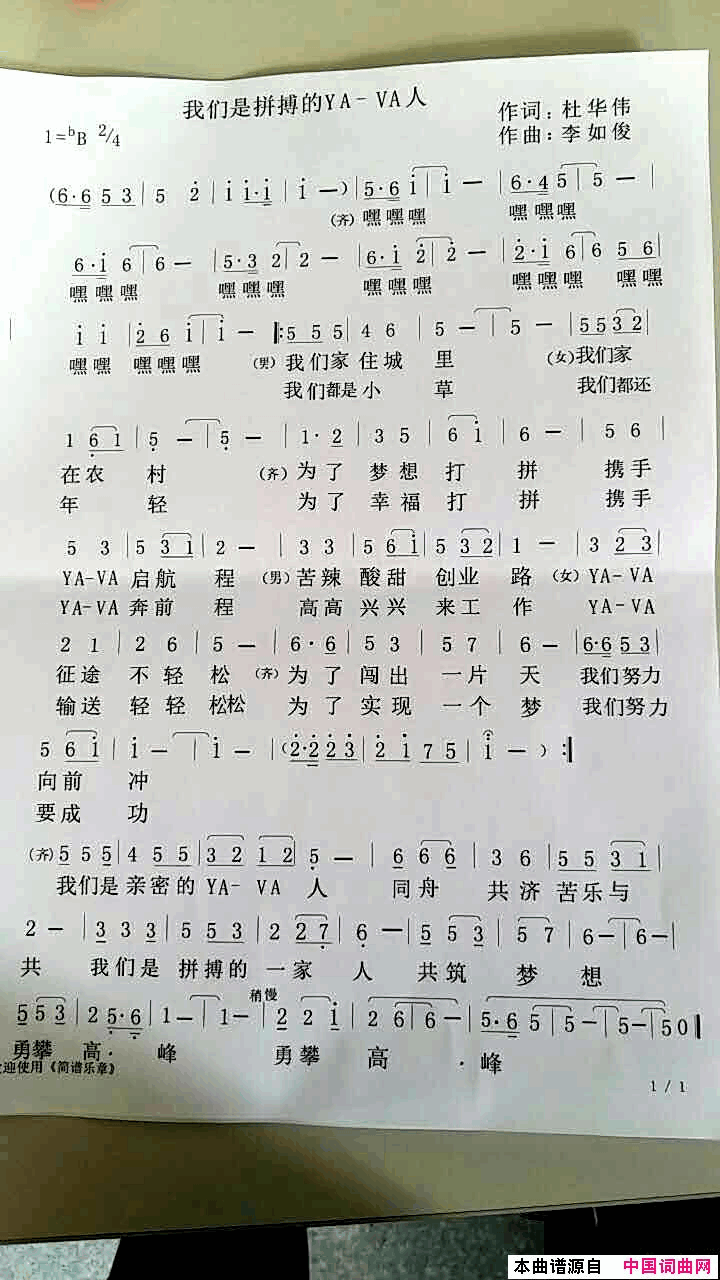 我们是拼搏的YA-VA人
作词:杜华伟
1=ᵇB 2/4
作曲:李如俊
(6·6 5 3 | 5 2 | i i·i | i — ) | 5·6 i | i — | 6·4 5 | 5 — |
(齐) 嘿嘿嘿 嘿嘿嘿
6·i 6 | 6 — | 5·3 2 | 2 — | 6·i 2 | 2 — | 2·i 6 | 6 5 6 |
嘿嘿嘿 嘿嘿嘿 嘿嘿嘿 嘿嘿嘿 嘿嘿
i i | 2 6 i | i — ‖: 5 5 5 | 4 6 | 5 — | 5 — | 5 5 3 2 |
嘿嘿 嘿嘿嘿 (男) 我们家 住城 里 (女) 我们家
我们都是小 草 我们都还
1 6 1 | 5 — | 5 — | 1· 2 | 3 5 | 6 i | 6 — | 5 6 |
在农 村 (齐) 为了 梦想 打 拼 携手
年 轻 为了 幸福 打 拼 携手
5 3 | 5 3 1 | 2 — | 3 3 | 5 6 i | 5 3 2 | 1 — | 3 2 3 |
YA-VA 启航 程 (男) 苦辣 酸甜 创业 路 (女) YA-VA
YA-VA 奔前 程 高高 兴兴 来工 作 YA-VA
2 1 | 2 6 | 5 — | 6· 6 | 5 3 | 5 7 | 6 — | 6·6 5 3 |
征途 不轻 松 (齐) 为了 闯出 一片 天 我们努力
输送 轻轻 松松 为了 实现 一个 梦 我们努力
5 6 i | i — | i — | (2·2 2 3 | 2 i 7 5 | i — ) :‖
向前 冲
要成 功
(齐) 5 5 5 | 4 5 5 | 3 2 1 2 | 5 — | 6 6 6 | 3 6 | 5 5 3 1 |
我们是 亲密的 YA-VA 人 同舟 共济 苦乐与
2 — | 3 3 3 | 5 5 3 | 2 2 7 | 6 — | 5 5 3 | 5 7 | 6 — | 6 — |
共 我们是 拼搏的 一家 人 共筑 梦 想
稍慢
5 5 3 | 2 5·6 | 1 — | 1 — | 2 2 i | 2 6 6 | 6 — | 5·6 5 | 5 — | 5 — | 5 0 ‖
勇攀 高· 峰 勇攀 高 · 峰
迎使用《简谱乐章》
1 / 1
本曲谱源自 中国词曲网